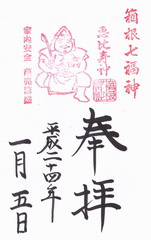 箱根七福神
恵比寿神
家内安全 商売繁盛
奉拝
平成二十四年
一月五日